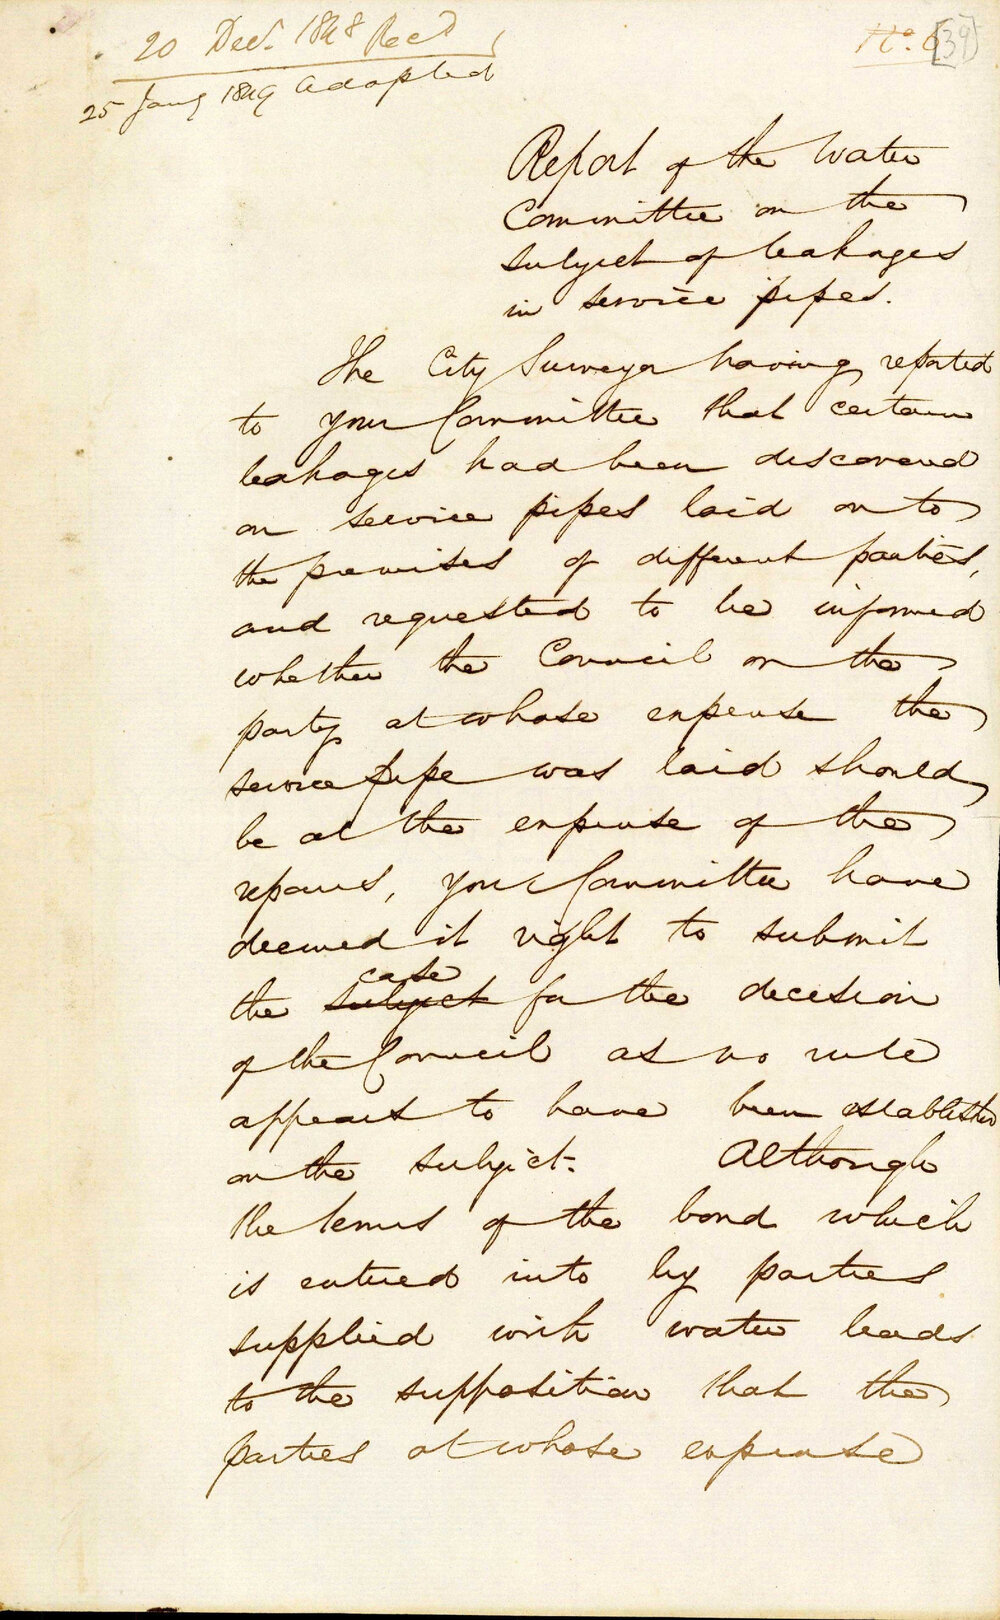 20 Decr. 1848 Recd
25 Jany 1849 Adopted
No. 6 [39]
Report of the Water
Committee on the
subject of leakages
in service pipes.
The City Surveyor having reported
to your Committee that certain
leakages had been discovered
on service pipes laid on to
the premises of different parties,
and requested to be informed
whether the Council or the
party at whose expense the
service pipe was laid should
be at the expense of the
repairs, your Committee have
deemed it right to submit
case
the subject for the decision
of the Council as no rule
appears to have been established
on the subject. Although
the terms of the bond which
is entered into by parties
supplied with water leads
to the supposition that the
parties at whose expense